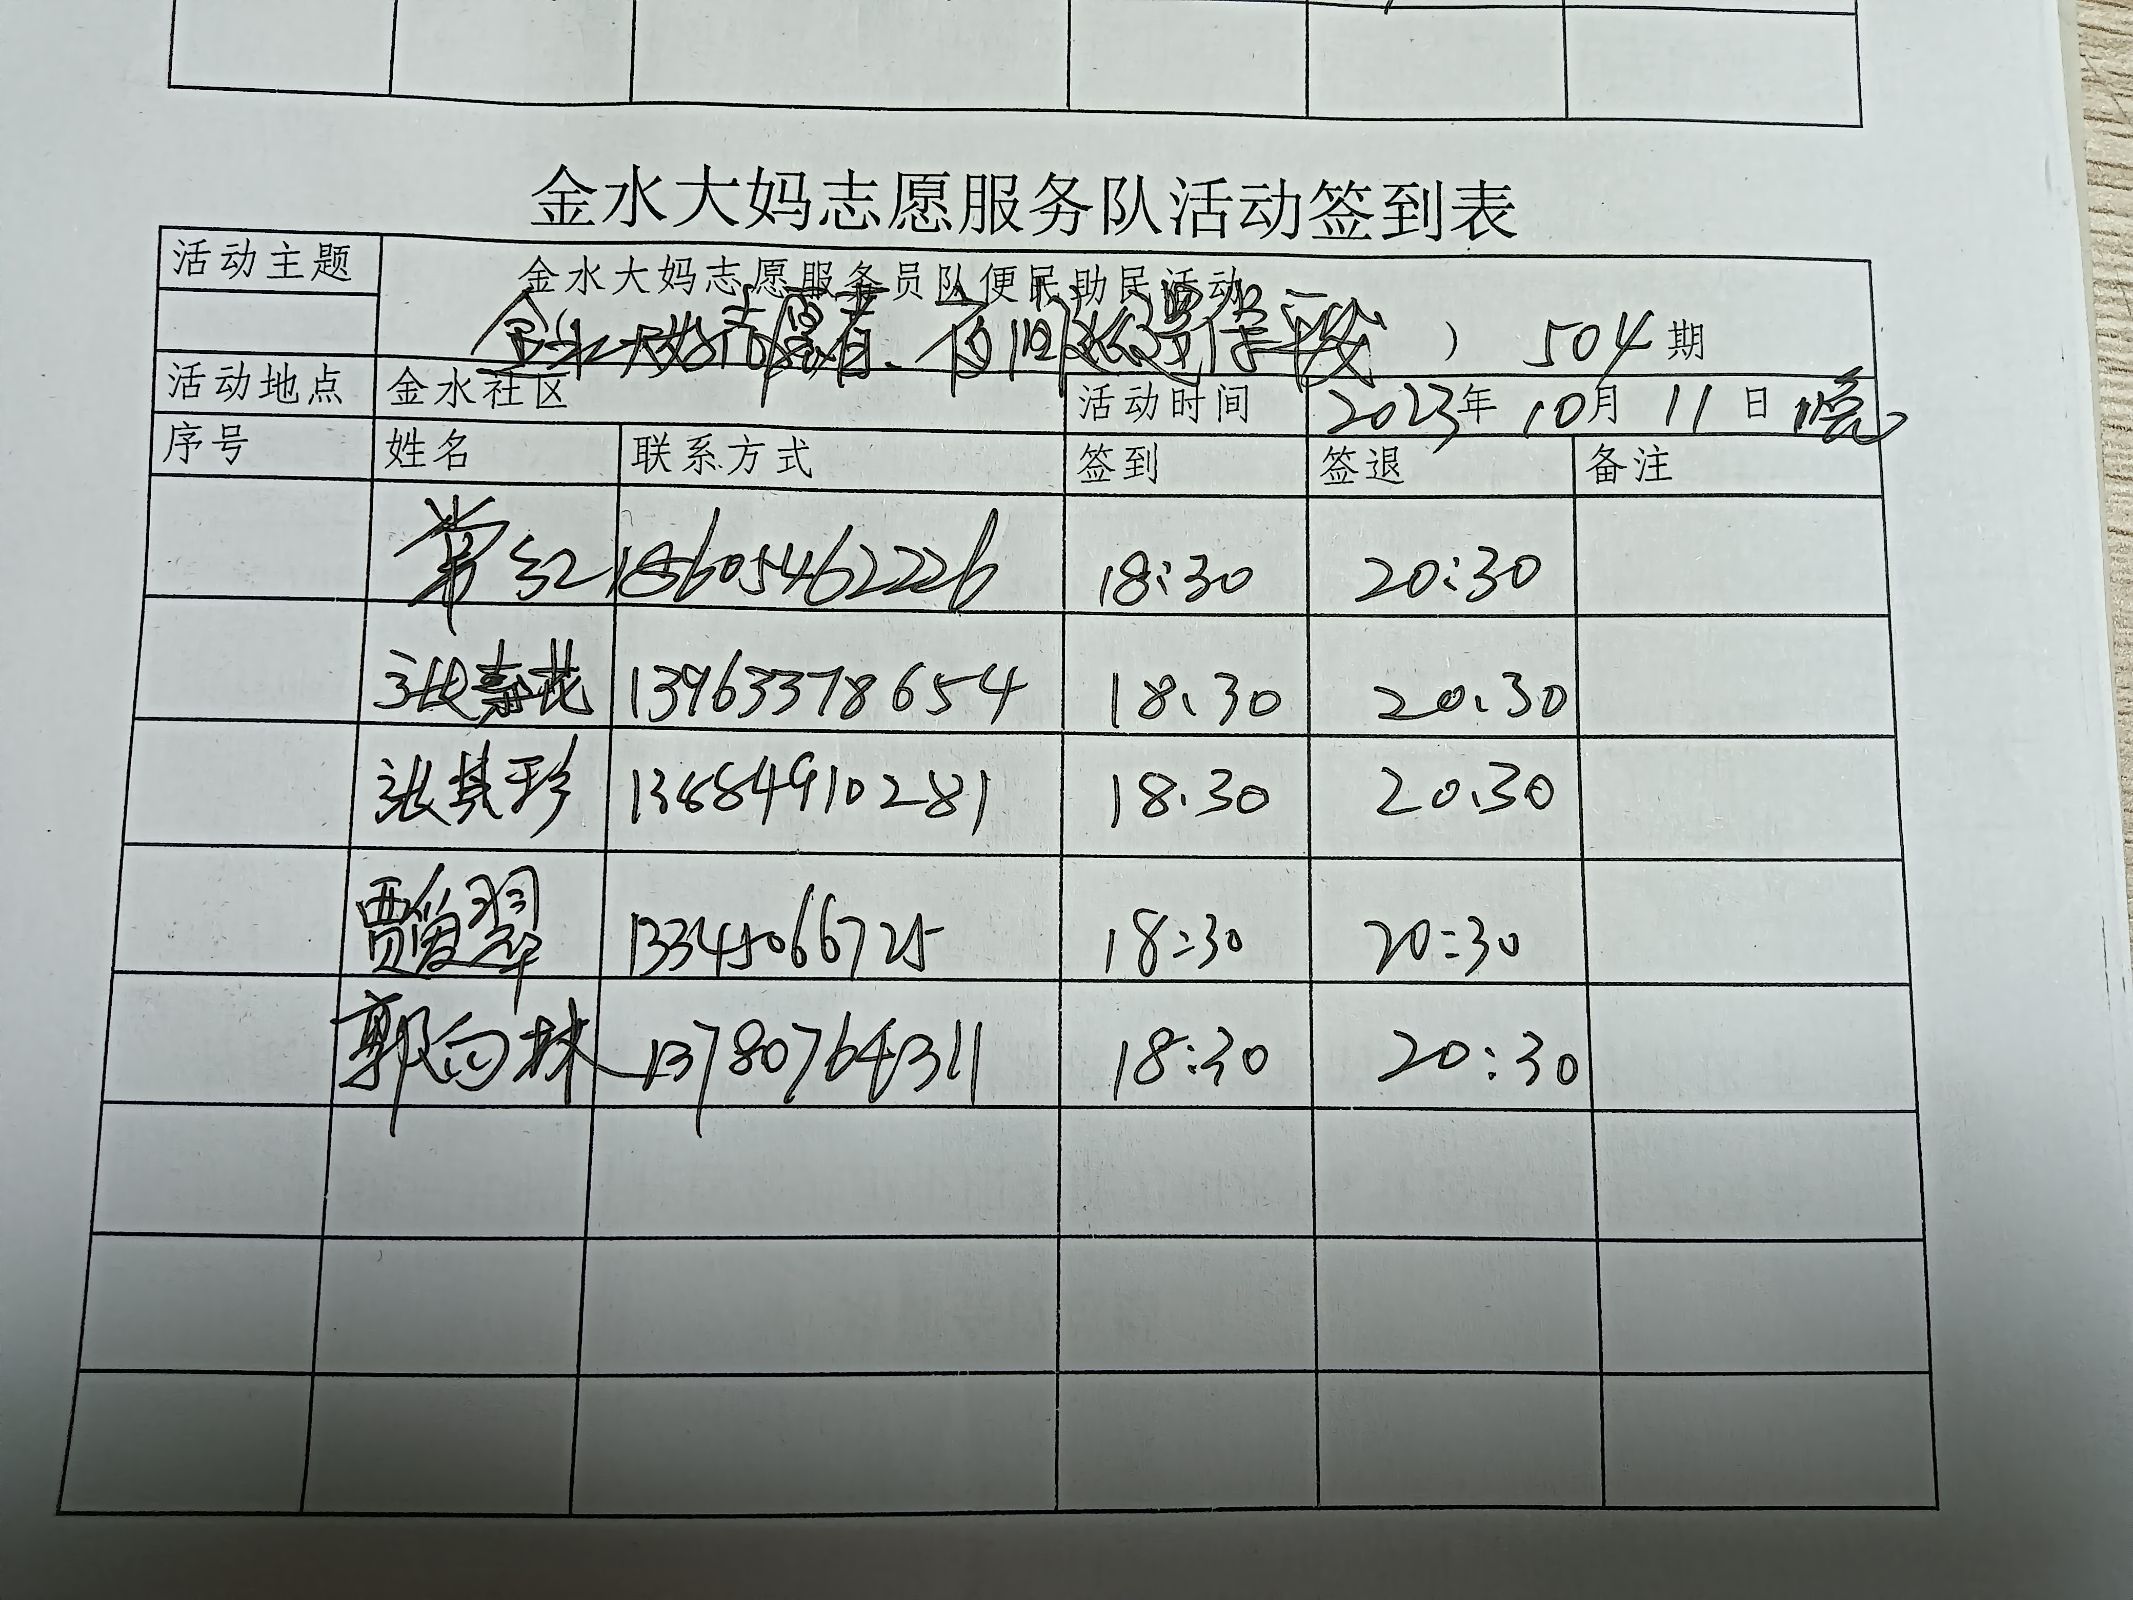 金水大妈志愿服务队活动签到表
活动主题
金水大妈志愿服务员队便民助民活动
金水大妈志愿者、夜间巡逻保平安 ） 504期
活动地点 金水社区 活动时间 2023年10月11日 晚
序号 姓名 联系方式 签到 签退 备注
常红 18605462226 18:30 20:30
张秦花 13963378654 18.30 20.30
张其珍 13884910281 18.30 20.30
贾爱翠 13345066725 18:30 20:30
郭向林 13780764311 18:30 20:30